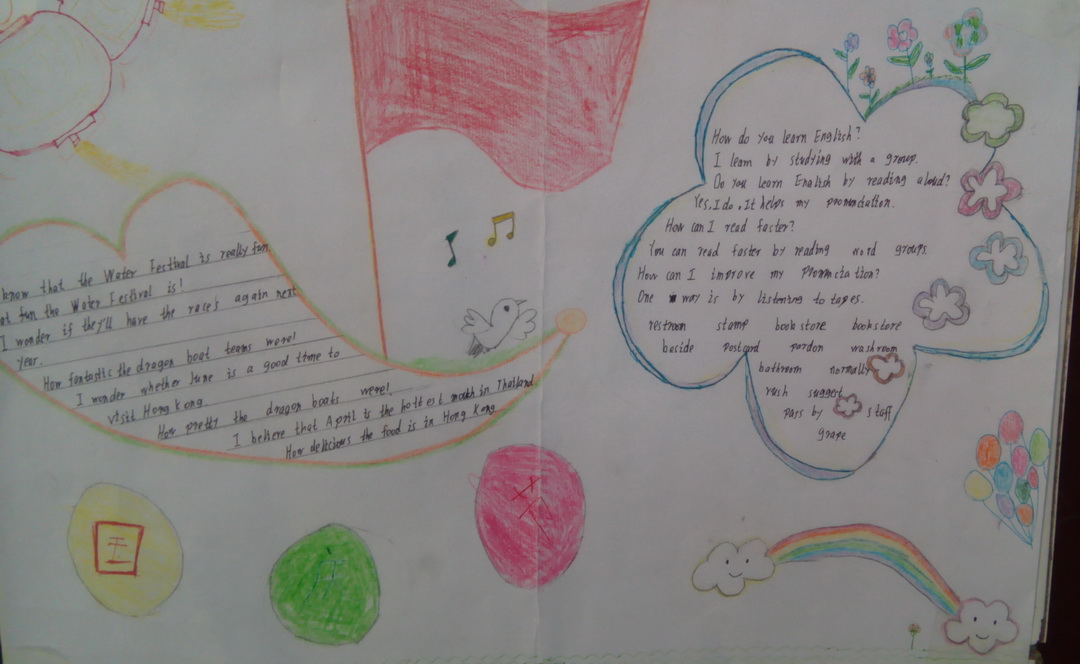 know that the Water Festival is really fun
at fun the Water Festival is!
I wonder if they'll have the races again next
year.
How fantastic the dragon boat teams were!
I wonder whether June is a good time to
visit Hong Kong.
How pretty the dragon boats were!
I believe that April is the hottest month in Thailand
How delicious the food is in Hong Kong
How do you learn English?
I learn by studying with a group.
Do you learn English by reading aloud?
Yes, I do. It helps my pronunciation.
How can I read faster?
You can read faster by reading word groups.
How can I improve my pronunciation?
One way is by listening to tapes.
restroom stamp bookstore bookstore
beside postcard pardon washroom
bathroom normally
rush suggest
pass by staff
grape
国